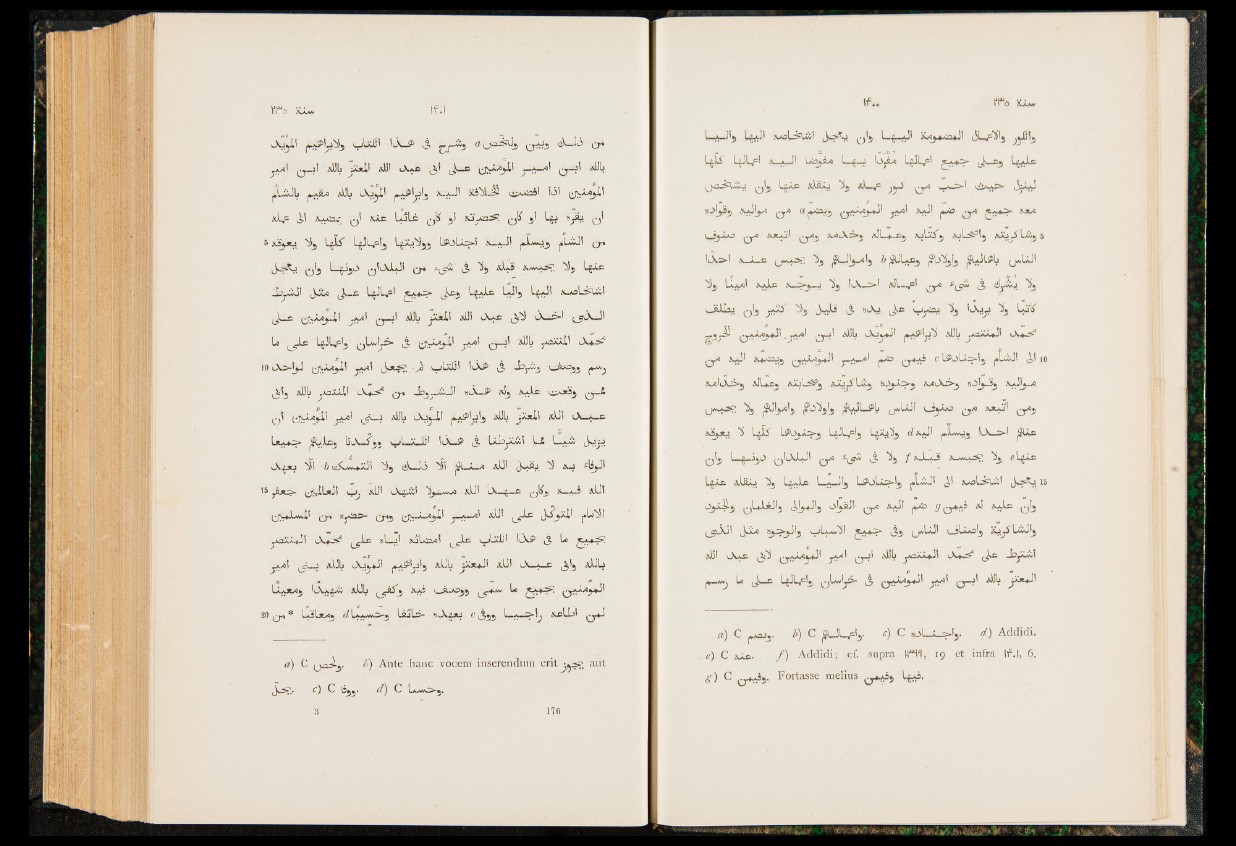 سنة ٢٣٥ ١٤٠٠
والثغور والاعمال المضمومة اليها وان يعجّل اشخاصه اليها واليا
عليها وعلى جميع اعمالها مُفْرَدًا بها مفوّضا اليه اعمالها كلّها
لينزل حيث احبّ من كور عمله ولا ينقله عنها وان يشخص
معه جميع من ضمّ اليه امير المؤمنين ويضمّ a من مواليه وقوّاده
5 وشاكريّته واصحابه وكتّابه وعمّاله وخدمه ومن اتبعه من صنوف
الناس باهاليهم وعيالهم b واولادهم واموالهم ولا يحبس عنه احدا
ولا يُشْرِك فى شىء من اعماله احدا ولا يوجّه عليه امينا ولا
كاتبا ولا بريدا ولا يضرب على يده فى قليل ولا كثير وان يطلق
محمّد المنتصر بالله لابرهيم المؤيّد بالله ابن امير المؤمنين الخروج
10 الى الشأم واجنادها c فيمن ضمّ امير المؤمنين ويضمّه اليه من
مواليه وقوّاده وخدمه وجنوده وشاكريّته وصحابته وعمّاله وخدّامه
ومن اتّبعه من صنوف الناس باهاليهم واولادهم واموالهم ولا يحبس
عنهم احدا ويسلّم اليه d ولايتها واعمالها وجنودها كلّها لا يعوقه
عنها e ولا يحبسه قبله f ولا فى شىء من البلدان دونها وان
15 يعجّل اشخاصه الى الشأم واجنادها واليا عليها ولا ينقله عنها
وانّ عليه له فيمن g ضمّ اليه من القوّاد والموالى والغلمان والجنود
والشاكريّة واصناف الناس وفى جميع الاسباب والوجوه مثل الذى
اشترط على محمّد المنتصر بالله ابن امير المؤمنين لابى عبد الله
المعتزّ بالله ابن امير المؤمنين فى خراسان واعمالها على ما رسم
a) C ويضم. b) C واعمالهم. c) C واجناده. d) Addidi.
e) C عنه. f) Addidi; cf. supra ١٣٩٩, 19 et infra ١٤٠١, 6.
g) C وفيمن. Fortasse melius فيها وفيمن.
سنة ٢٣٥ ١٤٠١
من ذلك وبيّن ولخّص a وشرح فى هذا الكتاب ولابرهيم المؤيّد
بالله ابن امير المؤمنين على ابى عبد الله المعتزّ بالله ابن امير
المؤمنين اذا افضت الخلافة اليه وابرهيم المؤيّد بالله مقيم بالشأم
ان يقرّه بها او كان بحضرته او كان غائبا عنه ان يمضيه الى عمله
5 من الشأم ويسلّم اليه اجنادها وولايتها واعمالها كلّها ولا يعوقه
عنها ولا يحبسه قبله ولا فى شىء من البلدان دونها وان يعجّل
اشخاصه اليها واليا عليها وعلى جميع اعمالها على مثل الشرط
الذى اخذ لابى عبد الله المعتزّ بالله ابن امير المؤمنين على
محمّد المنتصر بالله ابن امير المؤمنين فى خراسان واعمالها على ما
10 رسم ووصف وشرط فى هذا الكتاب لم يجعل امير المؤمنين لواحد
ممّن وقعت عليه وله هذه الشروط من محمّد المنتصر بالله وابى
عبد الله المعتزّ بالله وابرهيم المؤيّد بالله بنى امير المؤمنين ان
يزيل شيئا مما اشترطنا فى هذا الكتاب ووكّدنا وعليهم جميعا
الوفاء به لا يقبل الله منهم الّا ذلك ولا التمسّك b الّا بعهد
15 الله فيه وكان عهد الله مسئولا اشهد الله ربّ العالمين جعفر
الامام المتوكّل على الله امير المؤمنين ومن حضره من المسلمين
بجميع ما فى هذا الكتاب على امضائه ايّاه على محمّد المنتصر
بالله وابى عبد الله المعتزّ بالله وابرهيم المؤيّد بالله بنى امير
المؤمنين بجميع ما سمّى ووصف فيه وكفى بالله شهيدا ومعينا
20 لمن اطاعه راجيا ووفى c بعهده خائفا وحسيبا d ومعاقبا *من
a) C ولخص. b) Ante hanc vocem inserendum erit يجوز aut
يحلّ. c) C ووفا. d) C وحسسا.
3 176